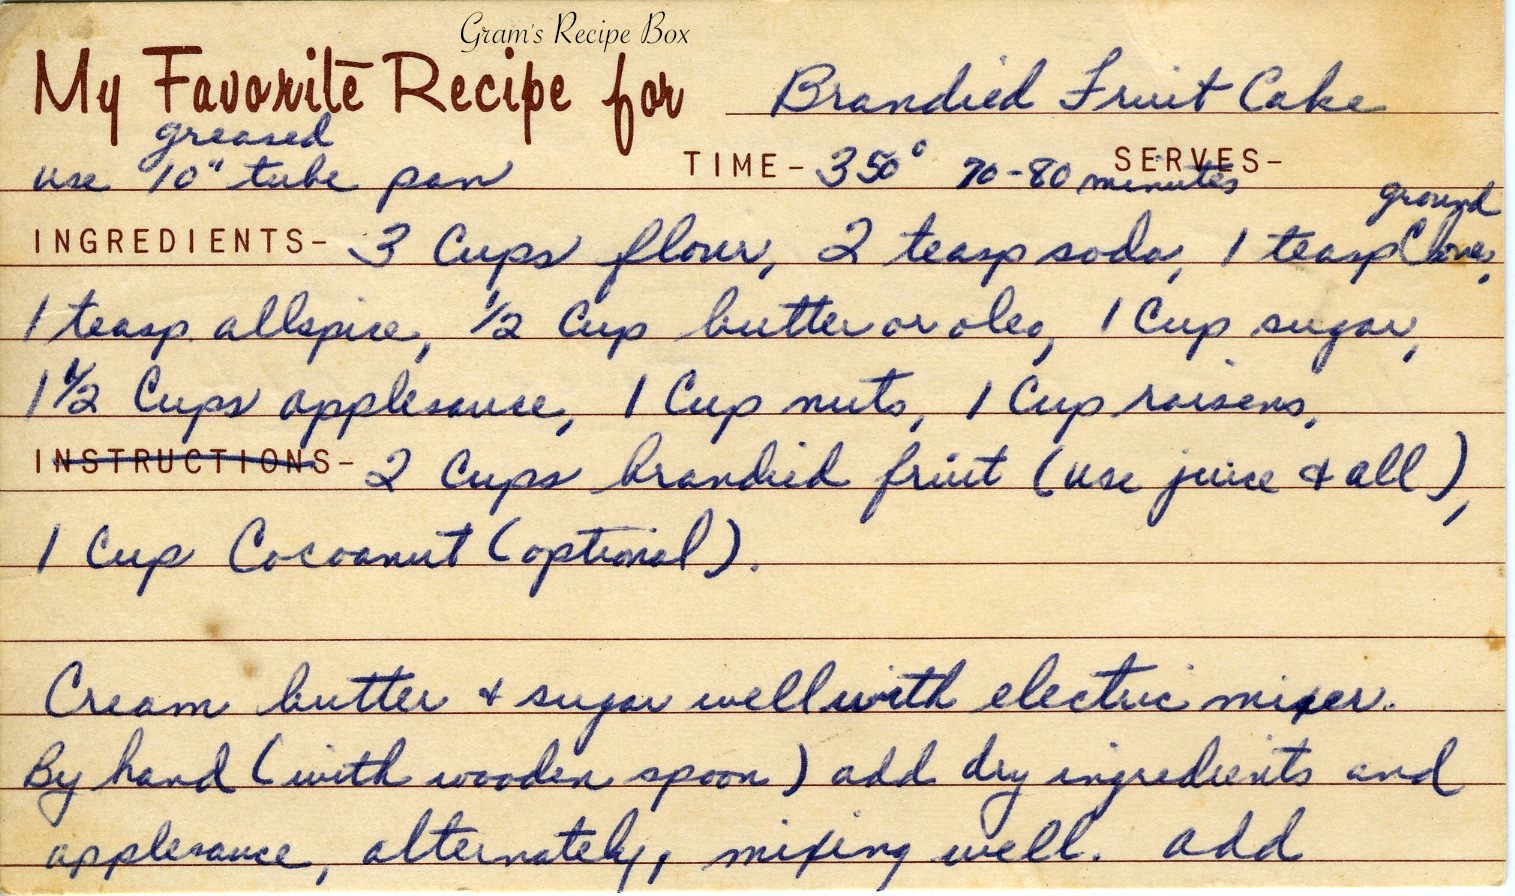 Gram's Recipe Box
My Favorite Recipe for Brandied Fruit Cake
greased
use 10" tube pan TIME- 350° 70-80 minutes SERVES-
ground
INGREDIENTS- 3 Cups flour, 2 teasp soda, 1 teasp Cloves,
1 teasp. allspice, 1/2 Cup butter or oleo, 1 Cup sugar,
1 1/2 Cups applesauce, 1 Cup nuts, 1 Cup raisens,
INSTRUCTIONS- 2 Cups brandied fruit (use juice & all),
1 Cup Cocoanut (optional).
Cream butter & sugar well with electric mixer.
By hand (with wooden spoon) add dry ingredients and
applesauce, alternately, mixing well. add